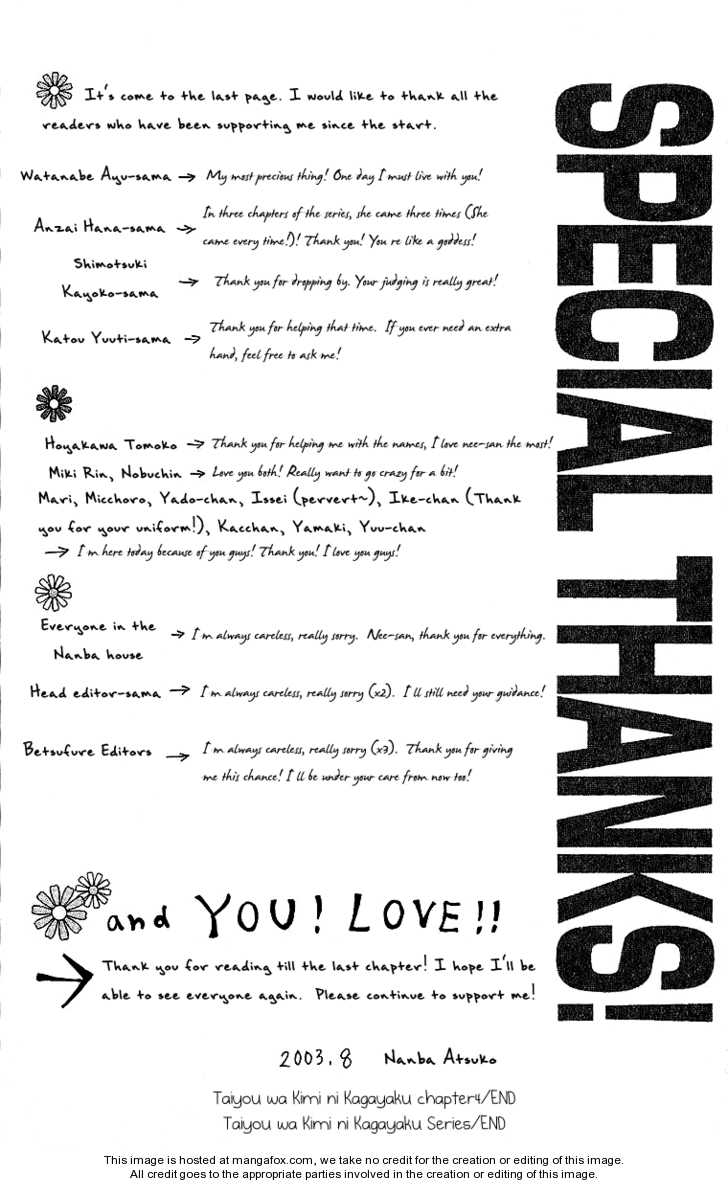 It's come to the last page. I would like to thank all the
readers who have been supporting me since the start.
Watanabe Ayu-sama → My most precious thing! One day I must live with you!
Anzai Hana-sama → In three chapters of the series, she came three times (She
came every time!)! Thank you! You re like a goddess!
Shimotsuki
Kayoko-sama → Thank you for dropping by. Your judging is really great!
Katou Yuuti-sama → Thank you for helping that time. If you ever need an extra
hand, feel free to ask me!
Hoyakawa Tomoko → Thank you for helping me with the names, I love nee-san the most!
Miki Rin, Nobuchin → Love you both! Really want to go crazy for a bit!
Mari, Micchoro, Yado-chan, Issei (pervert~), Ike-chan (Thank
you for your uniform!), Kacchan, Yamaki, Yuu-chan
→ I m here today because of you guys! Thank you! I love you guys!
Everyone in the
Nanba house → I m always careless, really sorry. Nee-san, thank you for everything.
Head editor-sama → I m always careless, really sorry (x2). I ll still need your guidance!
Betsufure Editors → I m always careless, really sorry (x3). Thank you for giving
me this chance! I ll be under your care from now too!
and YOU! LOVE!!
→ Thank you for reading till the last chapter! I hope I'll be
able to see everyone again. Please continue to support me!
2003.8 Nanba Atsuko
SPECIAL THANKS!
Taiyou wa Kimi ni Kagayaku chapter4/END
Taiyou wa Kimi ni Kagayaku Series/END
This image is hosted at mangafox.com, we take no credit for the creation or editing of this image.
All credit goes to the appropriate parties involved in the creation or editing of this image.